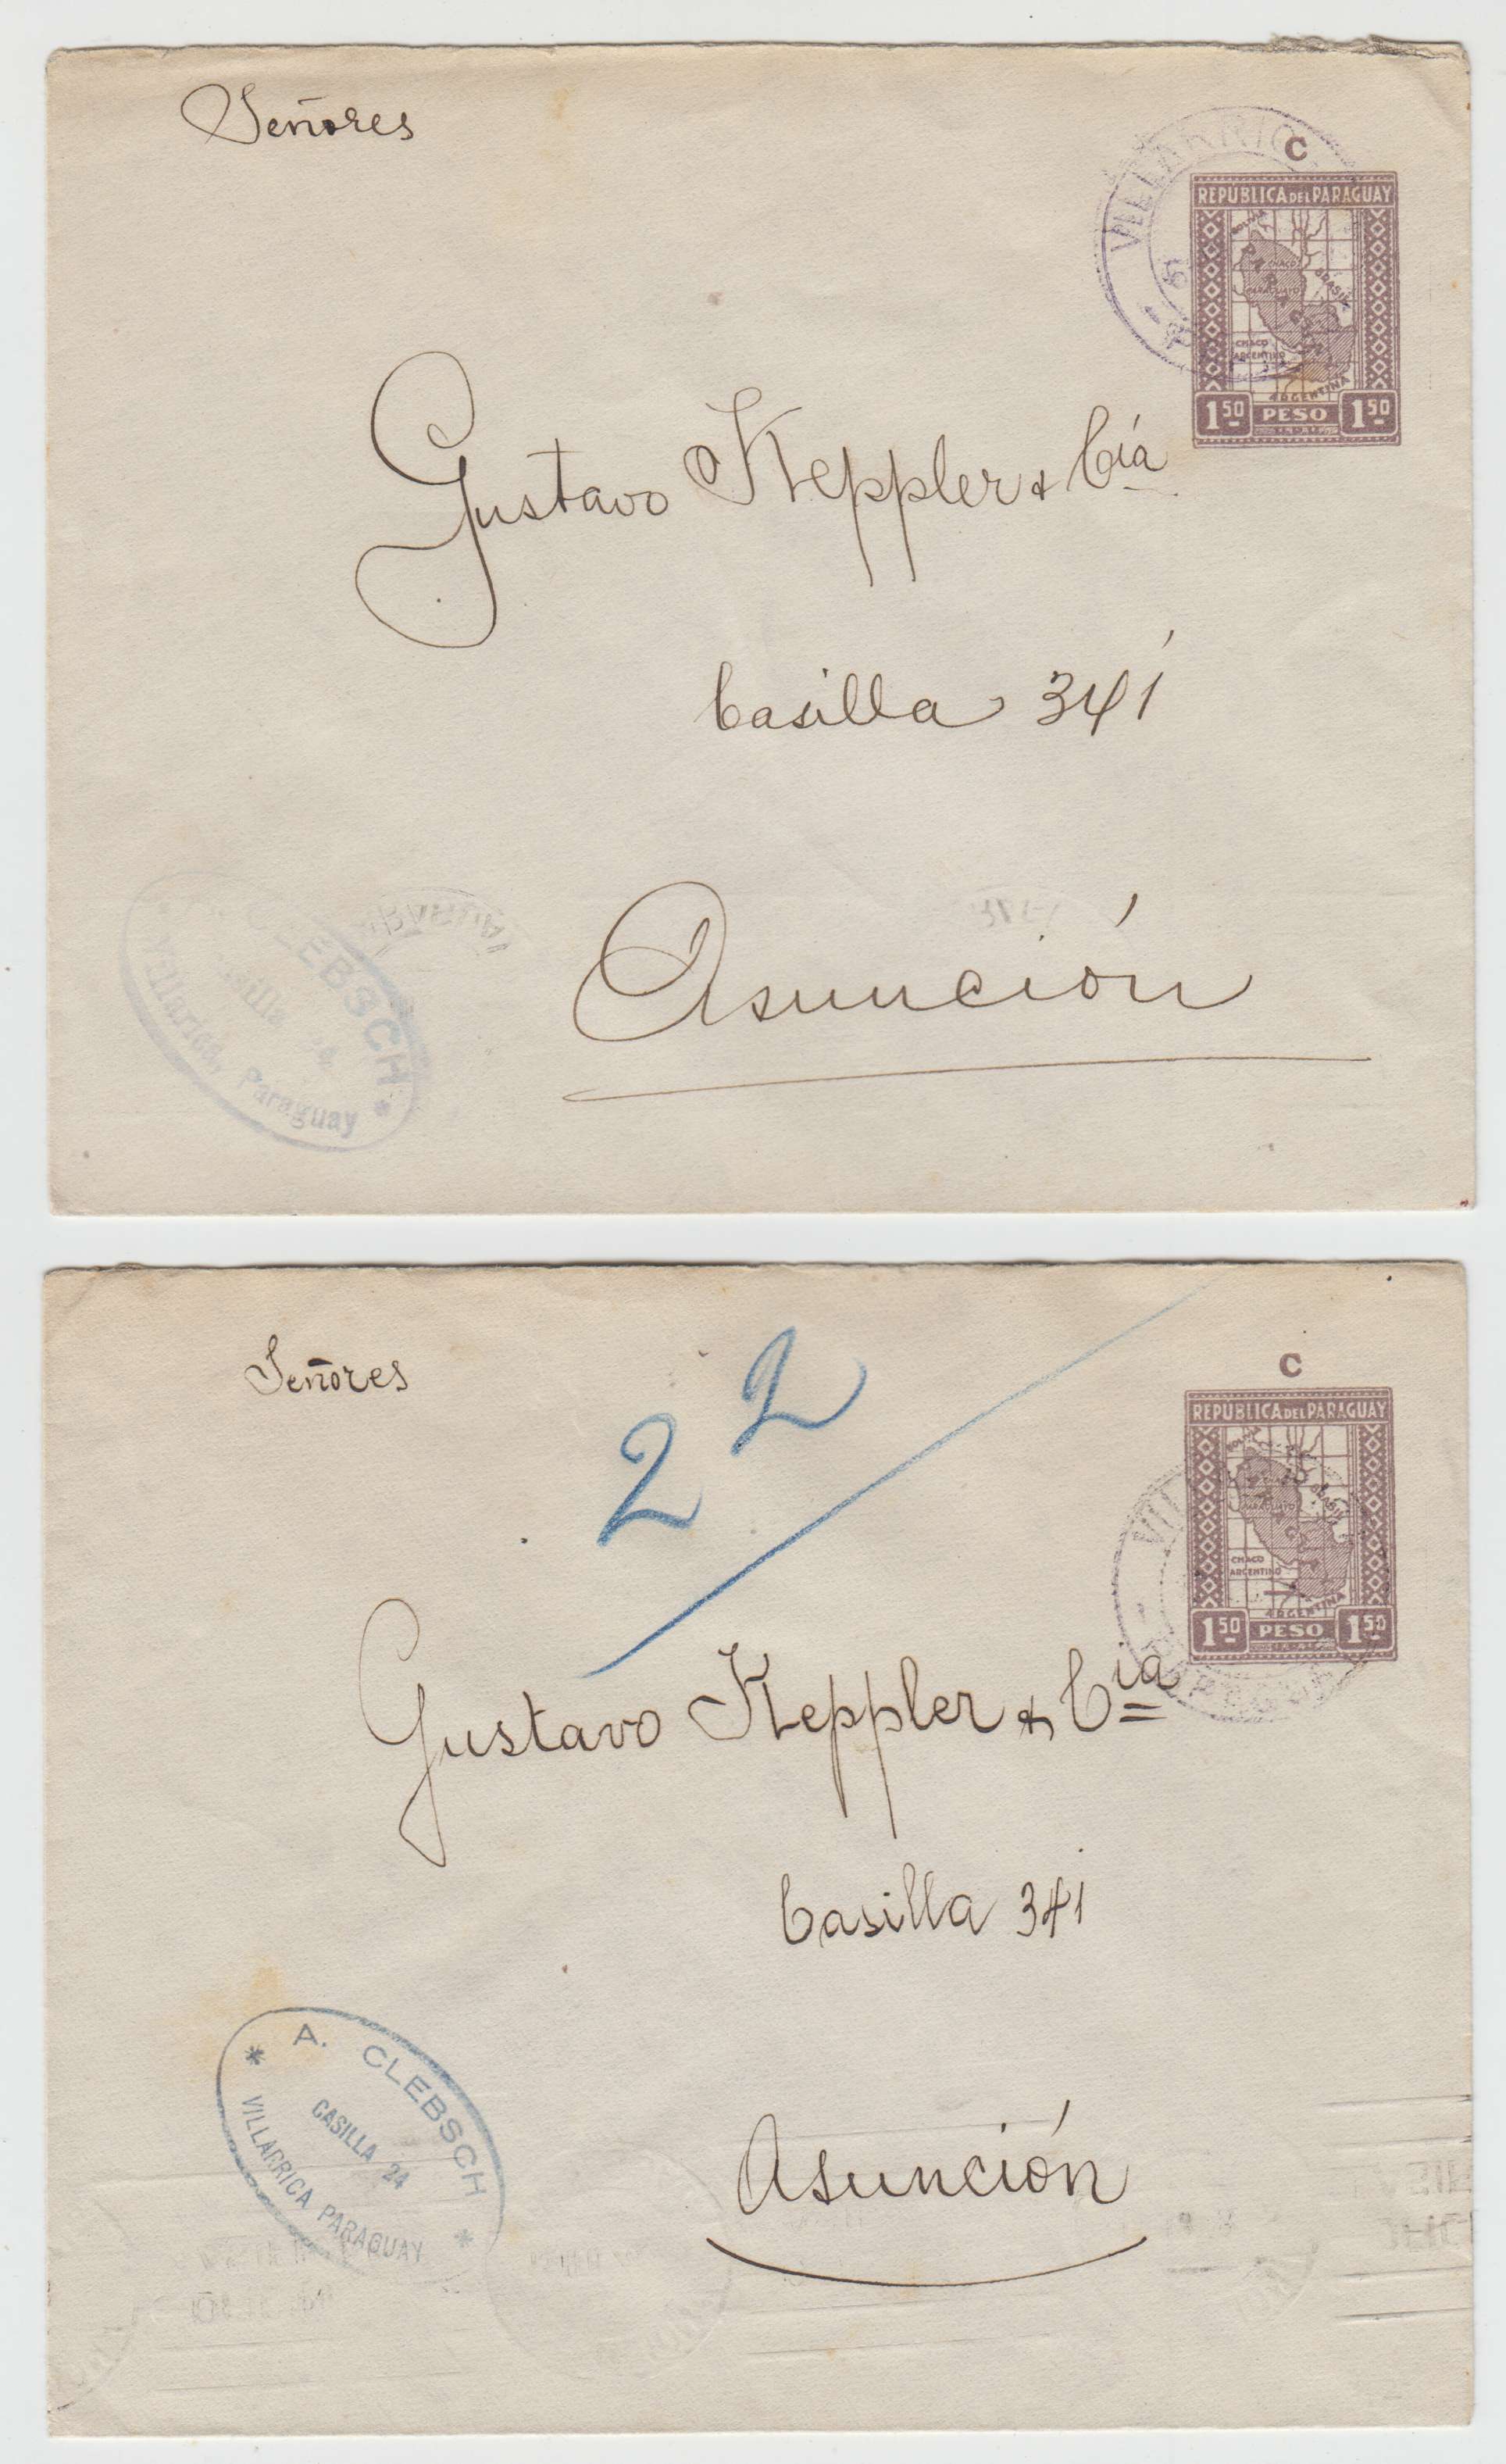 Señores
C
VILLARRIC
REPUBLICA DEL PARAGUAY
BOLIVIA
PARAGUAY
CHACO
PARAGUAYO
BRASIL
CHACO
ARGENTINO
ARGENTINA
1 50 PESO 1 50
Gustavo Keppler & Cía
Casilla 341
Asunción
CLEBSCH
Villarica, Paraguay
Señores
22
C
REPUBLICA DEL PARAGUAY
BOLIVIA
BRASIL
CHACO
ARGENTINO
ARGENTINA
1 50 PESO 1 50
Gustavo Keppler & Cía
Casilla 341
A. CLEBSCH
CASILLA 24
VILLARRICA PARAGUAY
Asunción